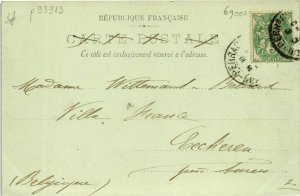 p 93913
69000
RÉPUBLIQUE FRANÇAISE
CARTE POSTALE
Ce côté est exclusivement réservé à l'adresse.
Madame Willemant
Villa Francia
Eecheren
près Anvers
(Belgique)